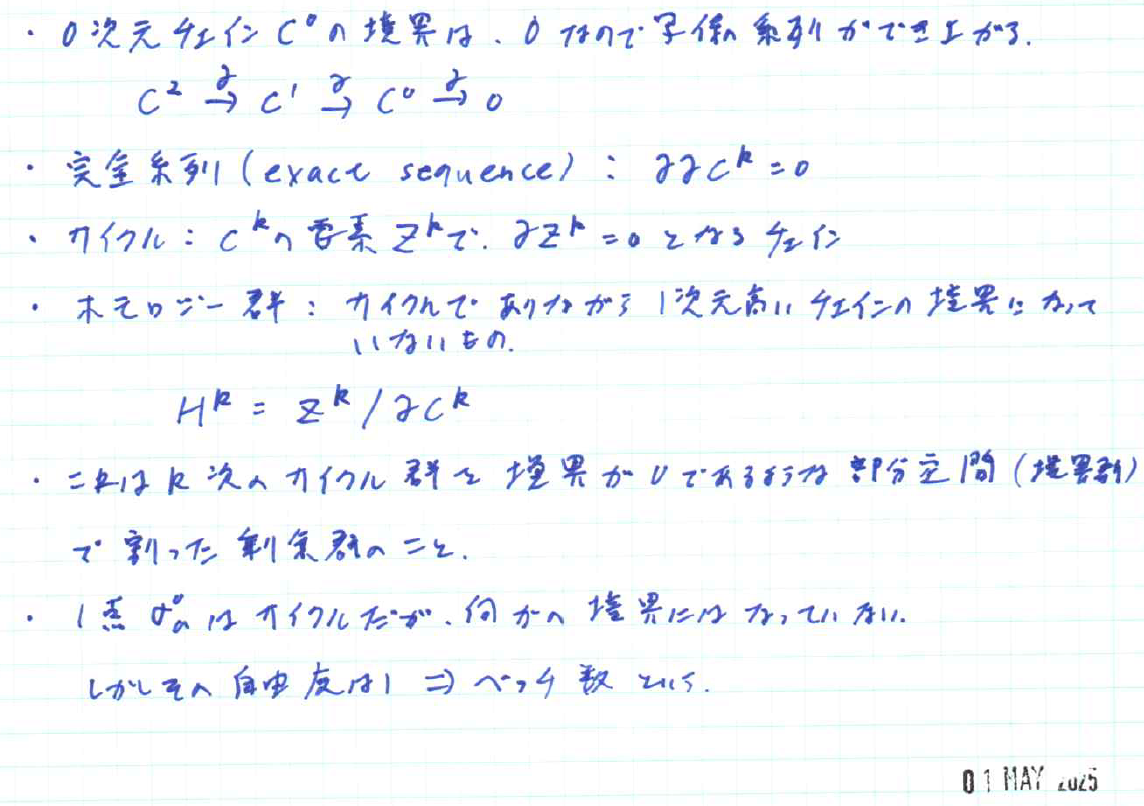 ・0次元チェイン C⁰の境界は、0なので字係の系列ができ上がる.
C² →∂ C¹ →∂ C⁰ →∂ 0
・完全系列 (exact sequence) : ∂∂C^k = 0
・サイクル : C^kの要素 Z^kで. ∂Z^k = 0 となるチェイン
・ホモロジー群 : サイクルでありながら 1次元高いチェインの境界になって
いないもの.
H^k = Z^k / ∂C^k
・これは k 次のサイクル群を境界が0であるような部分空間 (境界群)
で割った剰余群のこと.
・1点 σ⁰ₐ はサイクルだが、何かの境界にはなっていない.
しかしその自由度は1 ⇒ ベッチ数という.
01 MAY 2025